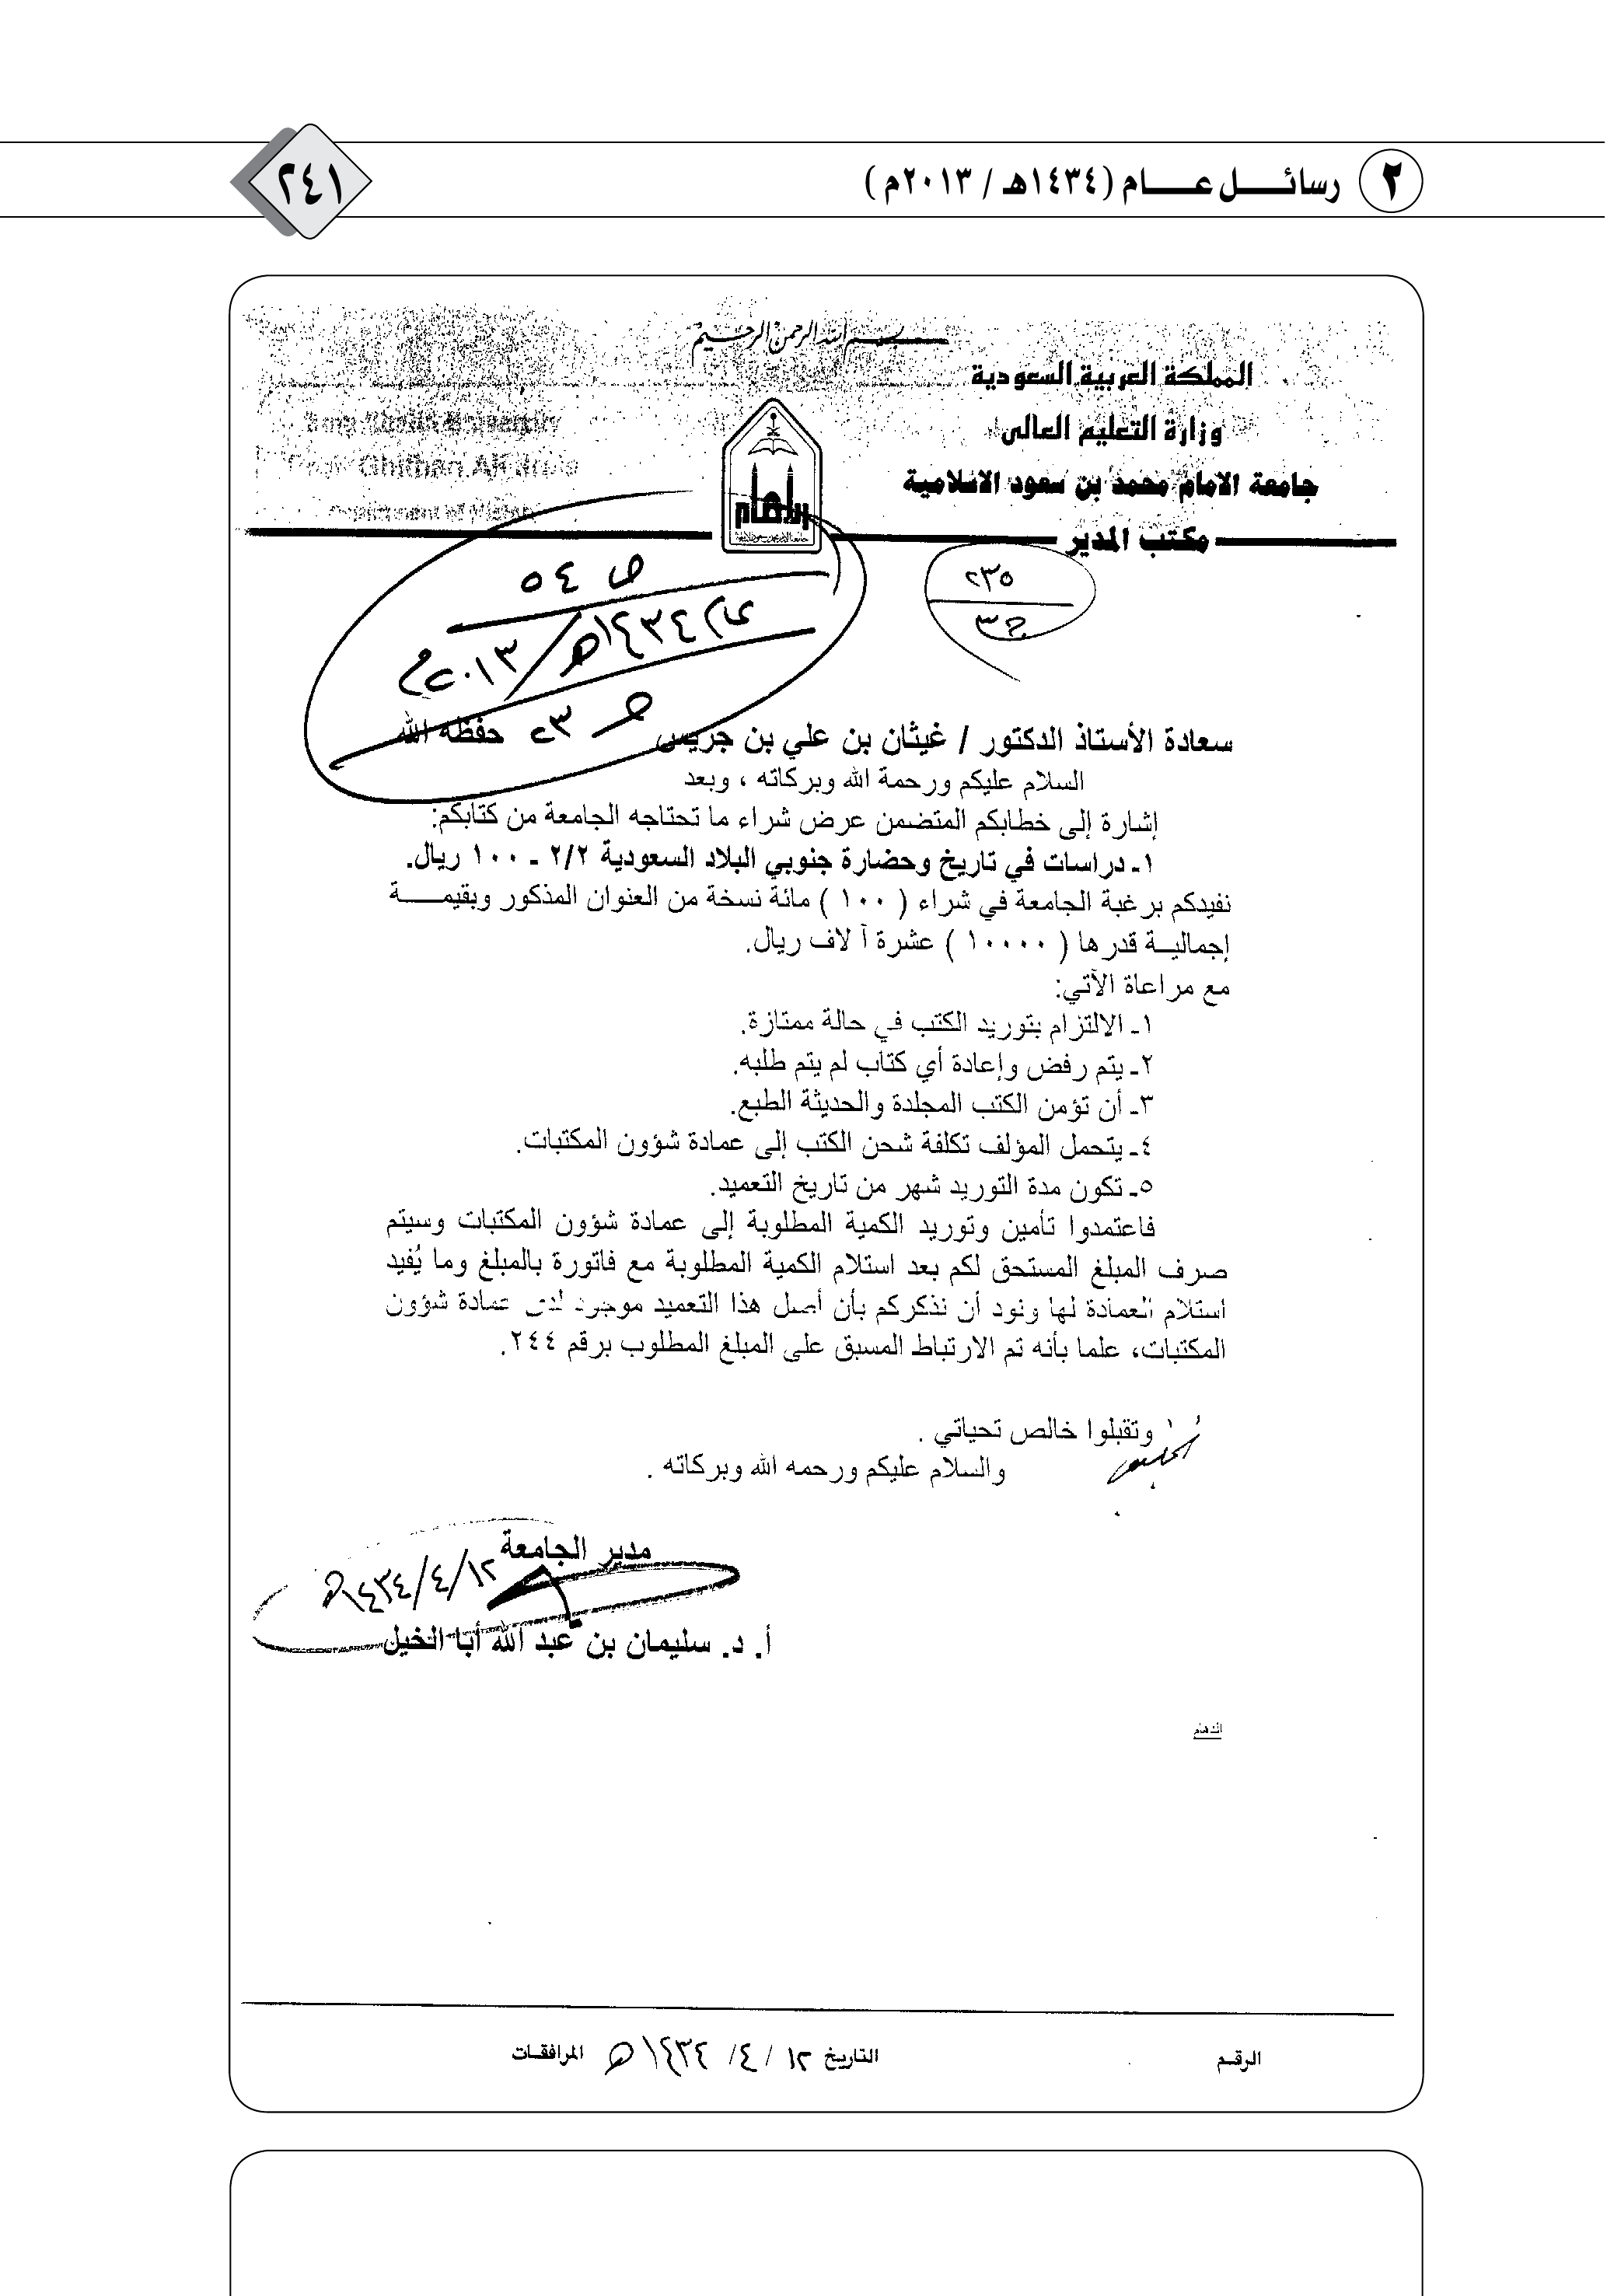 ٢ رسائل عام (١٤٣٤هـ / ٢٠١٣م)
٢٤١
بسم الله الرحمن الرحيم
المملكة العربية السعودية
وزارة التعليم العالي
جامعة الامام محمد بن سعود الاسلامية
مكتب المدير
Ghithan Ali
Department of History
الإمام
ص ٥٤
١٤٣٤هـ / ٢٠١٣م
٢٣٥
سعادة الأستاذ الدكتور / غيثان بن علي بن جريس حفظه الله
السلام عليكم ورحمة الله وبركاته ، وبعد
إشارة إلى خطابكم المتضمن عرض شراء ما تحتاجه الجامعة من كتابكم:
١ـ دراسات في تاريخ وحضارة جنوبي البلاد السعودية ٢/٢ ـ ١٠٠ ريال.
نفيدكم برغبة الجامعة في شراء ( ١٠٠ ) مائة نسخة من العنوان المذكور وبقيمة
إجمالية قدرها ( ١٠٠٠٠ ) عشرة آلاف ريال.
مع مراعاة الآتي:
١ـ الالتزام بتوريد الكتب في حالة ممتازة.
٢ـ يتم رفض وإعادة أي كتاب لم يتم طلبه.
٣ـ أن تؤمن الكتب المجلدة والحديثة الطبع.
٤ـ يتحمل المؤلف تكلفة شحن الكتب إلى عمادة شؤون المكتبات.
٥ـ تكون مدة التوريد شهر من تاريخ التعميد.
فاعتمدوا تأمين وتوريد الكمية المطلوبة إلى عمادة شؤون المكتبات وسيتم
صرف المبلغ المستحق لكم بعد استلام الكمية المطلوبة مع فاتورة بالمبلغ وما يُفيد
استلام العمادة لها ونود أن نذكركم بأن أصل هذا التعميد موجود لدى عمادة شؤون
المكتبات، علما بأنه تم الارتباط المسبق على المبلغ المطلوب برقم ٢٤٤.
وتقبلوا خالص تحياتي .
والسلام عليكم ورحمه الله وبركاته .
مدير الجامعة
١٢/٤/١٤٣٤هـ
أ. د. سليمان بن عبد الله أبا الخيل
الرقم التاريخ ١٢ / ٤ / ١٤٣٤هـ المرافقات